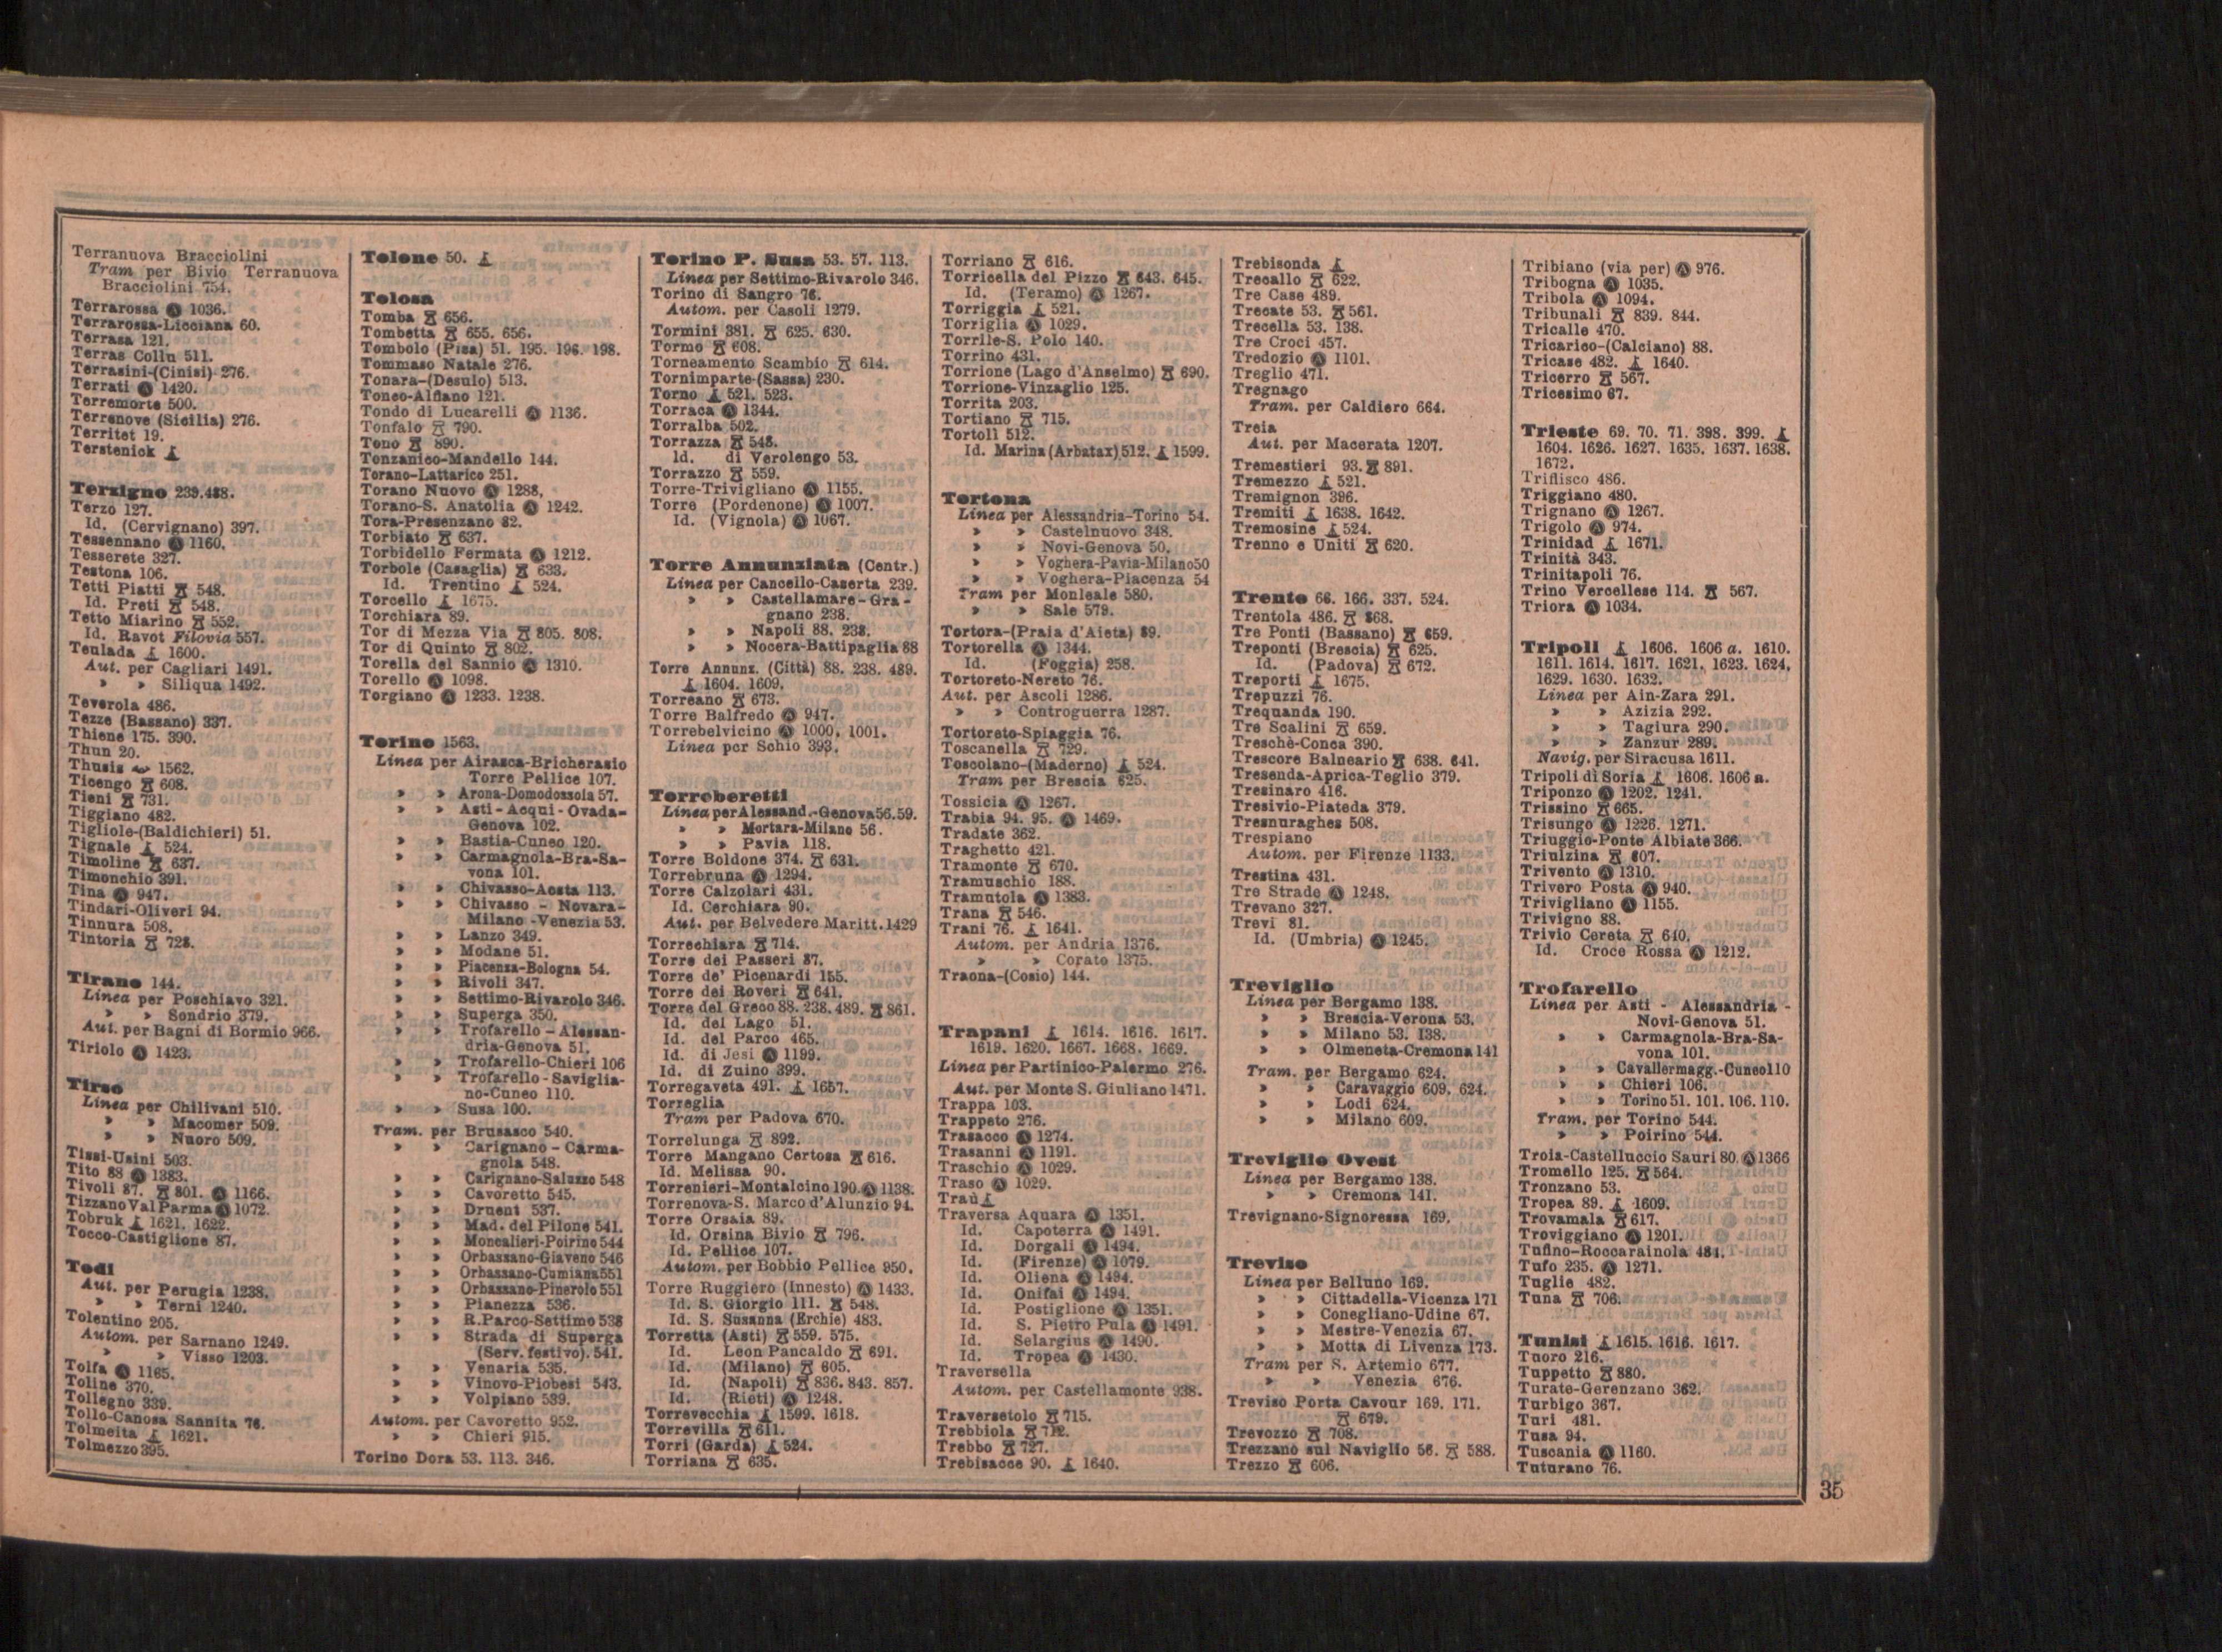 Terranuova Bracciolini
Tram per Bivio Terranuova
Bracciolini 754.
Terrarossa Ⓐ 1036.
Terrarossa-Licciana 60.
Terrasa 121.
Terras Collu 511.
Terrasini-(Cinisi) 276.
Terrati Ⓐ 1420.
Terremorte 500.
Terrenove (Sicilia) 276.
Territet 19.
Terstenick
Terzigno 239.488.
Terzo 127.
Id. (Cervignano) 397.
Tessennano Ⓐ 1160.
Tesserete 327.
Testona 106.
Tetti Piatti 548.
Id. Preti 548.
Tetto Miarino 552.
Id. Ravot Filovia 557.
Teulada 1600.
Aut. per Cagliari 1491.
» » Siliqua 1492.
Teverola 486.
Tezze (Bassano) 337.
Thiene 175. 390.
Thun 20.
Thusis 1562.
Ticengo 608.
Tieni 731.
Tiggiano 482.
Tigliole-(Baldichieri) 51.
Tignale 524.
Timoline 637.
Timonchio 391.
Tina Ⓐ 947.
Tindari-Oliveri 94.
Tinnura 508.
Tintoria 728.
Tirano 144.
Linea per Poschiavo 321.
» » Sondrio 379.
Aut. per Bagni di Bormio 966.
Tiriolo Ⓐ 1423.
Tirso
Linea per Chilivani 510.
» » Macomer 509.
» » Nuoro 509.
Tissi-Usini 503.
Tito 88 Ⓐ 1383.
Tivoli 87. 801. Ⓐ 1166.
Tizzano Val Parma Ⓐ 1072.
Tobruk 1621. 1622.
Tocco-Castiglione 87.
Todi
Aut. per Perugia 1238.
» » Terni 1240.
Tolentino 205.
Autom. per Sarnano 1249.
» » Visso 1203.
Tolfa Ⓐ 1165.
Toline 370.
Tollegno 339.
Tollo-Canosa Sannita 76.
Tolmeita 1621.
Tolmezzo 395.
Tolone 50.
Tolosa
Tomba 656.
Tombetta 655. 656.
Tombolo (Pisa) 51. 195. 196. 198.
Tommaso Natale 276.
Tonara-(Desulo) 513.
Tonco-Alfiano 121.
Tondo di Lucarelli Ⓐ 1136.
Tonfalo 790.
Tono 890.
Tonzanico-Mandello 144.
Torano-Lattarico 251.
Torano Nuovo Ⓐ 1288,
Torano-S. Anatolia Ⓐ 1242.
Tora-Presenzano 82.
Torbiato 637.
Torbidello Fermata Ⓐ 1212.
Torbole (Casaglia) 633.
Id. Trentino 524.
Torcello 1675.
Torchiara 89.
Tor di Mezza Via 805. 808.
Tor di Quinto 802.
Torella del Sannio Ⓐ 1310.
Torello Ⓐ 1098.
Torgiano Ⓐ 1233. 1238.
Torino 1563.
Linea per Airasca-Bricherasio
Torre Pellice 107.
» » Arona-Domodossola 57.
» » Asti-Acqui-Ovada-
Genova 102.
» » Bastia-Cuneo 120.
» » Carmagnola-Bra-Sa-
vona 101.
» » Chivasso-Aosta 113.
» » Chivasso - Novara-
Milano -Venezia 53.
» » Lanzo 349.
» » Modane 51.
» » Piacenza-Bologna 54.
» » Rivoli 347.
» » Settimo-Rivarolo 346.
» » Superga 350.
» » Trofarello - Alessan-
dria-Genova 51.
» » Trofarello-Chieri 106
» » Trofarello - Saviglia-
no-Cuneo 110.
» » Susa 100.
Tram. per Brusasco 540.
» » Carignano - Carma-
gnola 548.
» » Carignano-Saluzzo 548
» » Cavoretto 545.
» » Druent 537.
» » Mad. del Pilone 541.
» » Moncalieri-Poirino 544
» » Orbassano-Giaveno 546
» » Orbassano-Cumiana 551
» » Orbassano-Pinerolo 551
» » Pianezza 536.
» » R. Parco-Settimo 538
» » Strada di Superga
(Serv. festivo). 541.
» » Venaria 535.
» » Vinovo-Piobesi 543.
» » Volpiano 539.
Autom. per Cavoretto 952.
» » Chieri 915.
Torino Dora 53. 113. 346.
Torino P. Susa 53. 57. 113.
Linea per Settimo-Rivarolo 346.
Torino di Sangro 76.
Autom. per Casoli 1279.
Tormini 381. 625. 630.
Tormo 608.
Torneamento Scambio 614.
Tornimparte-(Sassa) 230.
Torno 521. 523.
Torraca Ⓐ 1344.
Torralba 502.
Torrazza 548.
Id. di Verolengo 53.
Torrazzo 559.
Torre-Trivigliano Ⓐ 1155.
Torre (Pordenone) Ⓐ 1007.
Id. (Vignola) Ⓐ 1067.
Torre Annunziata (Centr.)
Linea per Cancello-Caserta 239.
» » Castellamare-Gra-
gnano 238.
» » Napoli 88. 238.
» » Nocera-Battipaglia 88
Torre Annunz. (Città) 88. 238. 489.
1604. 1609.
Torreano 673.
Torre Balfredo Ⓐ 947.
Torrebelvicino Ⓐ 1000. 1001.
Linea per Schio 393.
Torreberetti
Linea per Alessand.-Genova 56.59.
» » Mortara-Milano 56.
» » Pavia 118.
Torre Boldone 374. 631.
Torrebruna Ⓐ 1294.
Torre Calzolari 431.
Id. Cerchiara 90.
Aut. per Belvedere Maritt. 1429
Torrechiara 714.
Torre dei Passeri 87.
Torre de' Picenardi 155.
Torre dei Roveri 641.
Torre del Greco 88. 238. 489. 861.
Id. del Lago 51.
Id. del Parco 465.
Id. di Jesi Ⓐ 1199.
Id. di Zuino 399.
Torregaveta 491. 1657.
Torreglia
Tram per Padova 670.
Torrelunga 892.
Torre Mangano Certosa 616.
Id. Melissa 90.
Torrenieri-Montalcino 190. Ⓐ 1138.
Torrenova-S. Marco d'Alunzio 94.
Torre Orsaia 89.
Id. Orsina Bivio 796.
Id. Pellice 107.
Autom. per Bobbio Pellice 950.
Torre Ruggiero (Innesto) Ⓐ 1433.
Id. S. Giorgio 111. 548.
Id. S. Susanna (Erchie) 483.
Torretta (Asti) 559. 575.
Id. Leon Pancaldo 691.
Id. (Milano) 605.
Id. (Napoli) 836. 843. 857.
Id. (Rieti) Ⓐ 1248.
Torrevecchia 1599. 1618.
Torrevilla 611.
Torri (Garda) 524.
Torriana 635.
Torriano 616.
Torricella del Pizzo 643. 645.
Id. (Teramo) Ⓐ 1267.
Torriggia 521.
Torriglia Ⓐ 1029.
Torrile-S. Polo 140.
Torrino 431.
Torrione (Lago d'Anselmo) 690.
Torrione-Vinzaglio 125.
Torrita 203.
Tortiano 715.
Tortolì 512.
Id. Marina (Arbatax) 512. 1599.
Tortona
Linea per Alessandria-Torino 54.
» » Castelnuovo 348.
» » Novi-Genova 50.
» » Voghera-Pavia-Milano 50
» » Voghera-Piacenza 54
Tram per Monleale 580.
» » Sale 579.
Tortora-(Praia d'Aieta) 89.
Tortorella Ⓐ 1344.
Id. (Foggia) 258.
Tortoreto-Nereto 76.
Aut. per Ascoli 1286.
» » Controguerra 1287.
Tortoreto-Spiaggia 76.
Toscanella 729.
Toscolano-(Maderno) 524.
Tram per Brescia 625.
Tossicia Ⓐ 1267.
Trabia 94. 95. Ⓐ 1469.
Tradate 362.
Traghetto 421.
Tramonte 670.
Tramuschio 188.
Tramutola Ⓐ 1383.
Trana 546.
Trani 76. 1641.
Autom. per Andria 1376.
» » Corato 1375.
Traona-(Cosio) 144.
Trapani 1614. 1616. 1617.
1619. 1620. 1667. 1668. 1669.
Linea per Partinico-Palermo 276.
Aut. per Monte S. Giuliano 1471.
Trappa 103.
Trappeto 276.
Trasacco Ⓐ 1274.
Trasanni Ⓐ 1191.
Traschio Ⓐ 1029.
Traso Ⓐ 1029.
Traù
Traversa Aquara Ⓐ 1351.
Id. Capoterra Ⓐ 1491.
Id. Dorgali Ⓐ 1494.
Id. (Firenze) Ⓐ 1079.
Id. Oliena Ⓐ 1494.
Id. Onifai Ⓐ 1494.
Id. Postiglione Ⓐ 1351.
Id. S. Pietro Pula Ⓐ 1491.
Id. Selargius Ⓐ 1490.
Id. Tropea Ⓐ 1430.
Traversella
Autom. per Castellamonte 938.
Traversetolo 715.
Trebbiola 712.
Trebbo 727.
Trebisacce 90. 1640.
Trebisonda
Trecallo 622.
Tre Case 489.
Trecate 53. 561.
Trecella 53. 138.
Tre Croci 457.
Tredozio Ⓐ 1101.
Treglio 471.
Tregnago
Tram. per Caldiero 664.
Treia
Aut. per Macerata 1207.
Tremestieri 93. 891.
Tremezzo 521.
Tremignon 396.
Tremiti 1638. 1642.
Tremosine 524.
Trenno e Uniti 620.
Trento 66. 166. 337. 524.
Trentola 486. 868.
Tre Ponti (Bassano) 659.
Treponti (Brescia) 625.
Id. (Padova) 672.
Treporti 1675.
Trepuzzi 76.
Trequanda 190.
Tre Scalini 659.
Treschè-Conca 390.
Trescore Balneario 638. 641.
Tresenda-Aprica-Teglio 379.
Tresinaro 416.
Tresivio-Piateda 379.
Tresnuraghes 508.
Trespiano
Autom. per Firenze 1133.
Trestina 431.
Tre Strade Ⓐ 1248.
Trevano 327.
Trevi 81.
Id. (Umbria) Ⓐ 1245.
Treviglio
Linea per Bergamo 138.
» » Brescia-Verona 53.
» » Milano 53. 138.
» » Olmeneta-Cremona 141
Tram. per Bergamo 624.
» » Caravaggio 609. 624.
» » Lodi 624.
» » Milano 609.
Treviglio Ovest
Linea per Bergamo 138.
» » Cremona 141.
Trevignano-Signoressa 169.
Treviso
Linea per Belluno 169.
» » Cittadella-Vicenza 171
» » Conegliano-Udine 67.
» » Mestre-Venezia 67.
» » Motta di Livenza 173.
Tram per S. Artemio 677.
» » Venezia 676.
Treviso Porta Cavour 169. 171.
679.
Trevozzo 708.
Trezzano sul Naviglio 56. 588.
Trezzo 606.
Tribiano (via per) Ⓐ 976.
Tribogna Ⓐ 1035.
Tribola Ⓐ 1094.
Tribunali 839. 844.
Tricalle 470.
Tricarico-(Calciano) 88.
Tricase 482. 1640.
Tricerro 567.
Tricesimo 67.
Trieste 69. 70. 71. 398. 399.
1604. 1626. 1627. 1635. 1637. 1638.
1672.
Triflisco 486.
Triggiano 480.
Trignano Ⓐ 1267.
Trigolo Ⓐ 974.
Trinidad 1671.
Trinità 343.
Trinitapoli 76.
Trino Vercellese 114. 567.
Triora Ⓐ 1034.
Tripoli 1606. 1606 a. 1610.
1611. 1614. 1617. 1621. 1623. 1624.
1629. 1630. 1632.
Linea per Ain-Zara 291.
» » Azizia 292.
» » Tagiura 290.
» » Zanzur 289.
Navig. per Siracusa 1611.
Tripoli di Soria 1606. 1606 a.
Triponzo Ⓐ 1202. 1241.
Trissino 665.
Trisungo Ⓐ 1226. 1271.
Triuggio-Ponte Albiate 366.
Triulzina 607.
Trivento Ⓐ 1310.
Trivero Posta Ⓐ 940.
Trivigliano Ⓐ 1155.
Trivigno 88.
Trivio Cereta 640.
Id. Croce Rossa Ⓐ 1212.
Trofarello
Linea per Asti - Alessandria -
Novi-Genova 51.
» » Carmagnola-Bra-Sa-
vona 101.
» » Cavallermagg.-Cuneo 110
» » Chieri 106.
» » Torino 51. 101. 106. 110.
Tram. per Torino 544.
» » Poirino 544.
Troia-Castelluccio Sauri 80. Ⓐ 1366
Tromello 125. 564.
Tronzano 53.
Tropea 89. 1609.
Trovamala 617.
Troviggiano Ⓐ 1201.
Tufino-Roccarainola 484.
Tufo 235. Ⓐ 1271.
Tuglie 482.
Tuna 706.
Tunisi 1615. 1616. 1617.
Tuoro 216.
Tuppetto 880.
Turate-Gerenzano 362.
Turbigo 367.
Turi 481.
Tusa 94.
Tuscania Ⓐ 1160.
Tuturano 76.
35